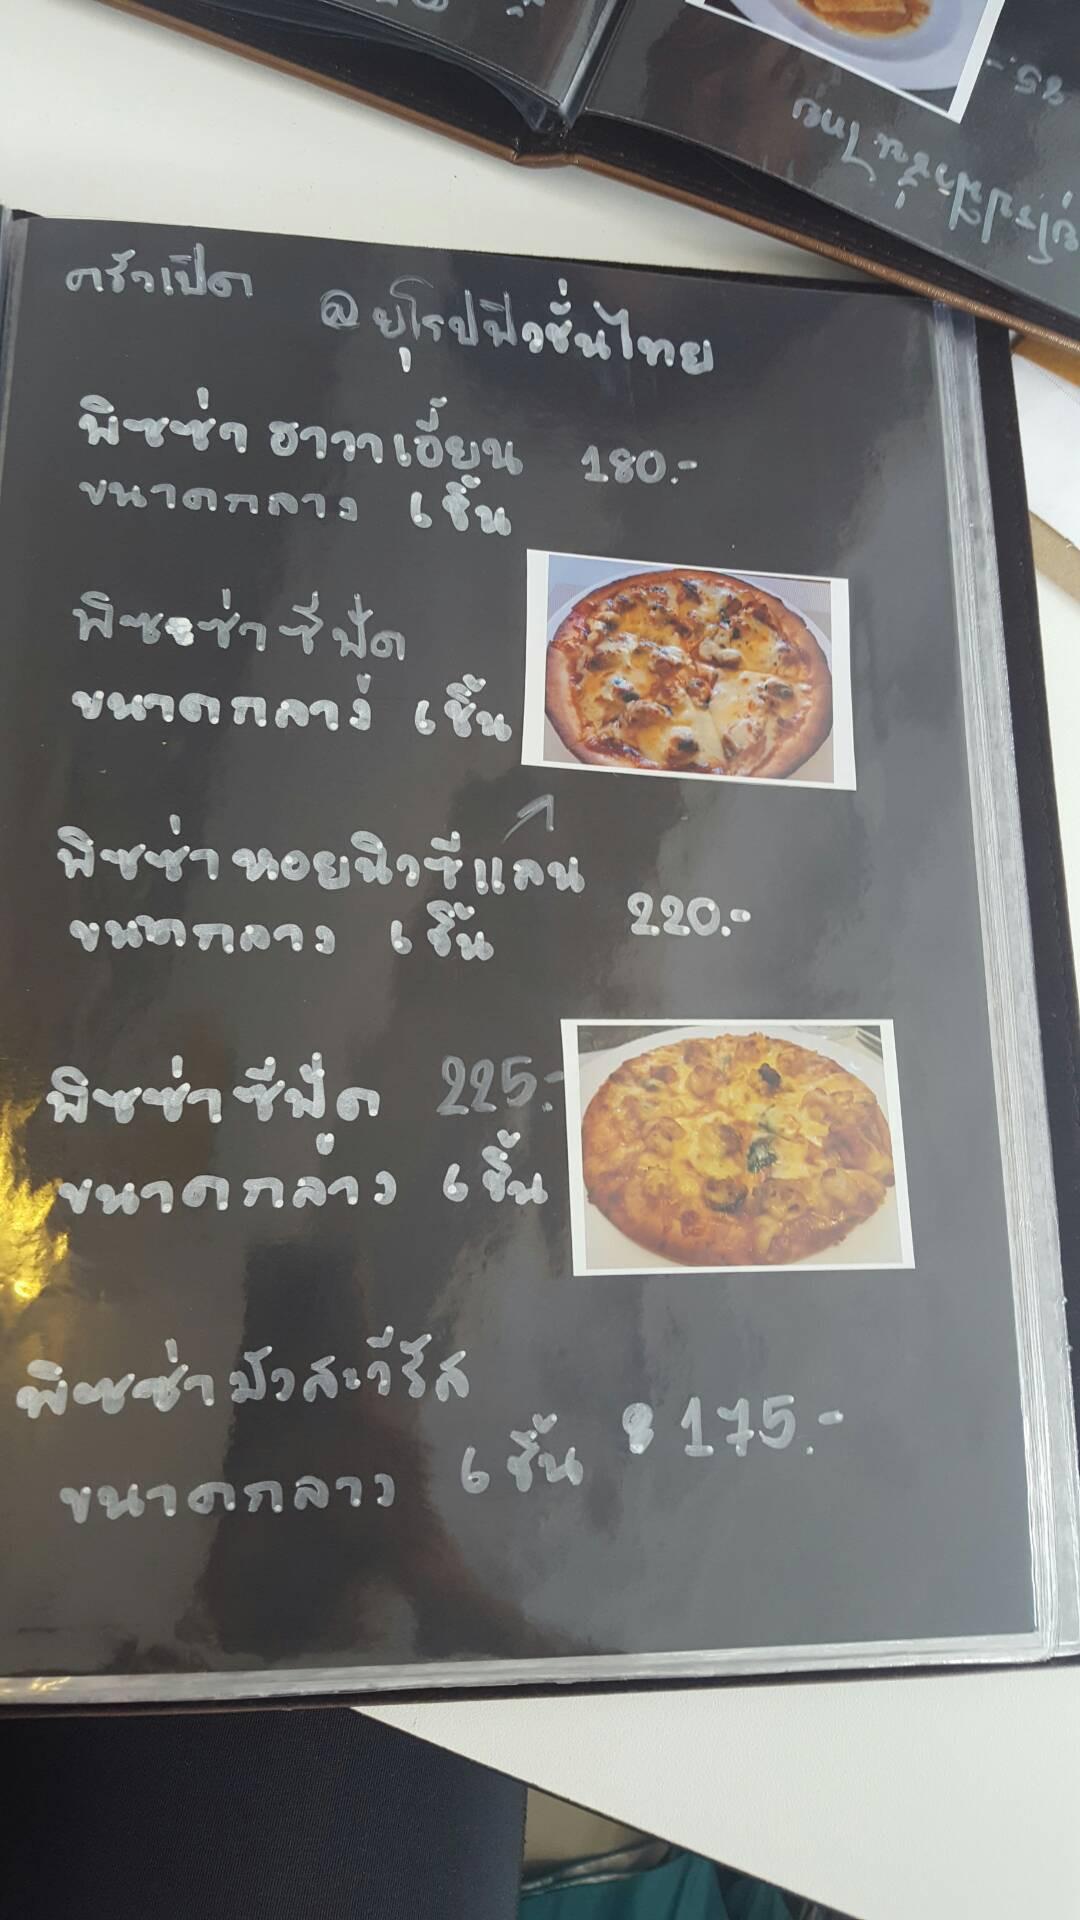 ครัวเปิด @ยุโรปฟิวชั่นไทย
พิซซ่า ฮาวาเอี้ยน 180.-
ขนาดกลาง 6 ชิ้น
พิซซ่า ซีฟัด
ขนาดกลาง 6 ชิ้น
พิซซ่า หอยนิวซีแลน
ขนาดกลาง 6 ชิ้น 220.-
พิซซ่า ซีฟู้ด 225.-
ขนาดกลาง 6 ชิ้น
พิซซ่า
ขนาดกลาง 6 ชิ้น 175.-
95.-
ยุโรปฟิวชั่นไทย